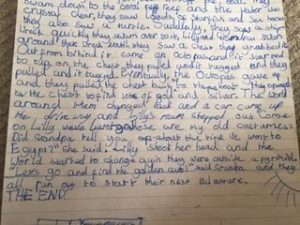 swam down to the coral reef and the water was
crystal clear they saw loads of starfish and sea horses
they also saw a turtle. Suddenly they saw a ship
wreck quickly they swam over to it,
around the wreck until they saw a chest they grabbed it
but from behind it came an octopus and it
to rip on the chest they pulled and tugged and they
pulled and it tugged. Eventually the Octopus gave up
and they pulled the chest to the They opened
the chest to find lots of gold and The
around. Mum changed back and a car came up
the drive way and Lily's mum stepped out. Come
on Lily are my old costumes.
Did Grandpa tell you about that time we went to
Egypt?" She said. Lily shook her head and the
World started to change again. they were outside a pyramid
"Let's go and find the golden said Grandpa and they
all ran off to start their next adventure.
THE END.